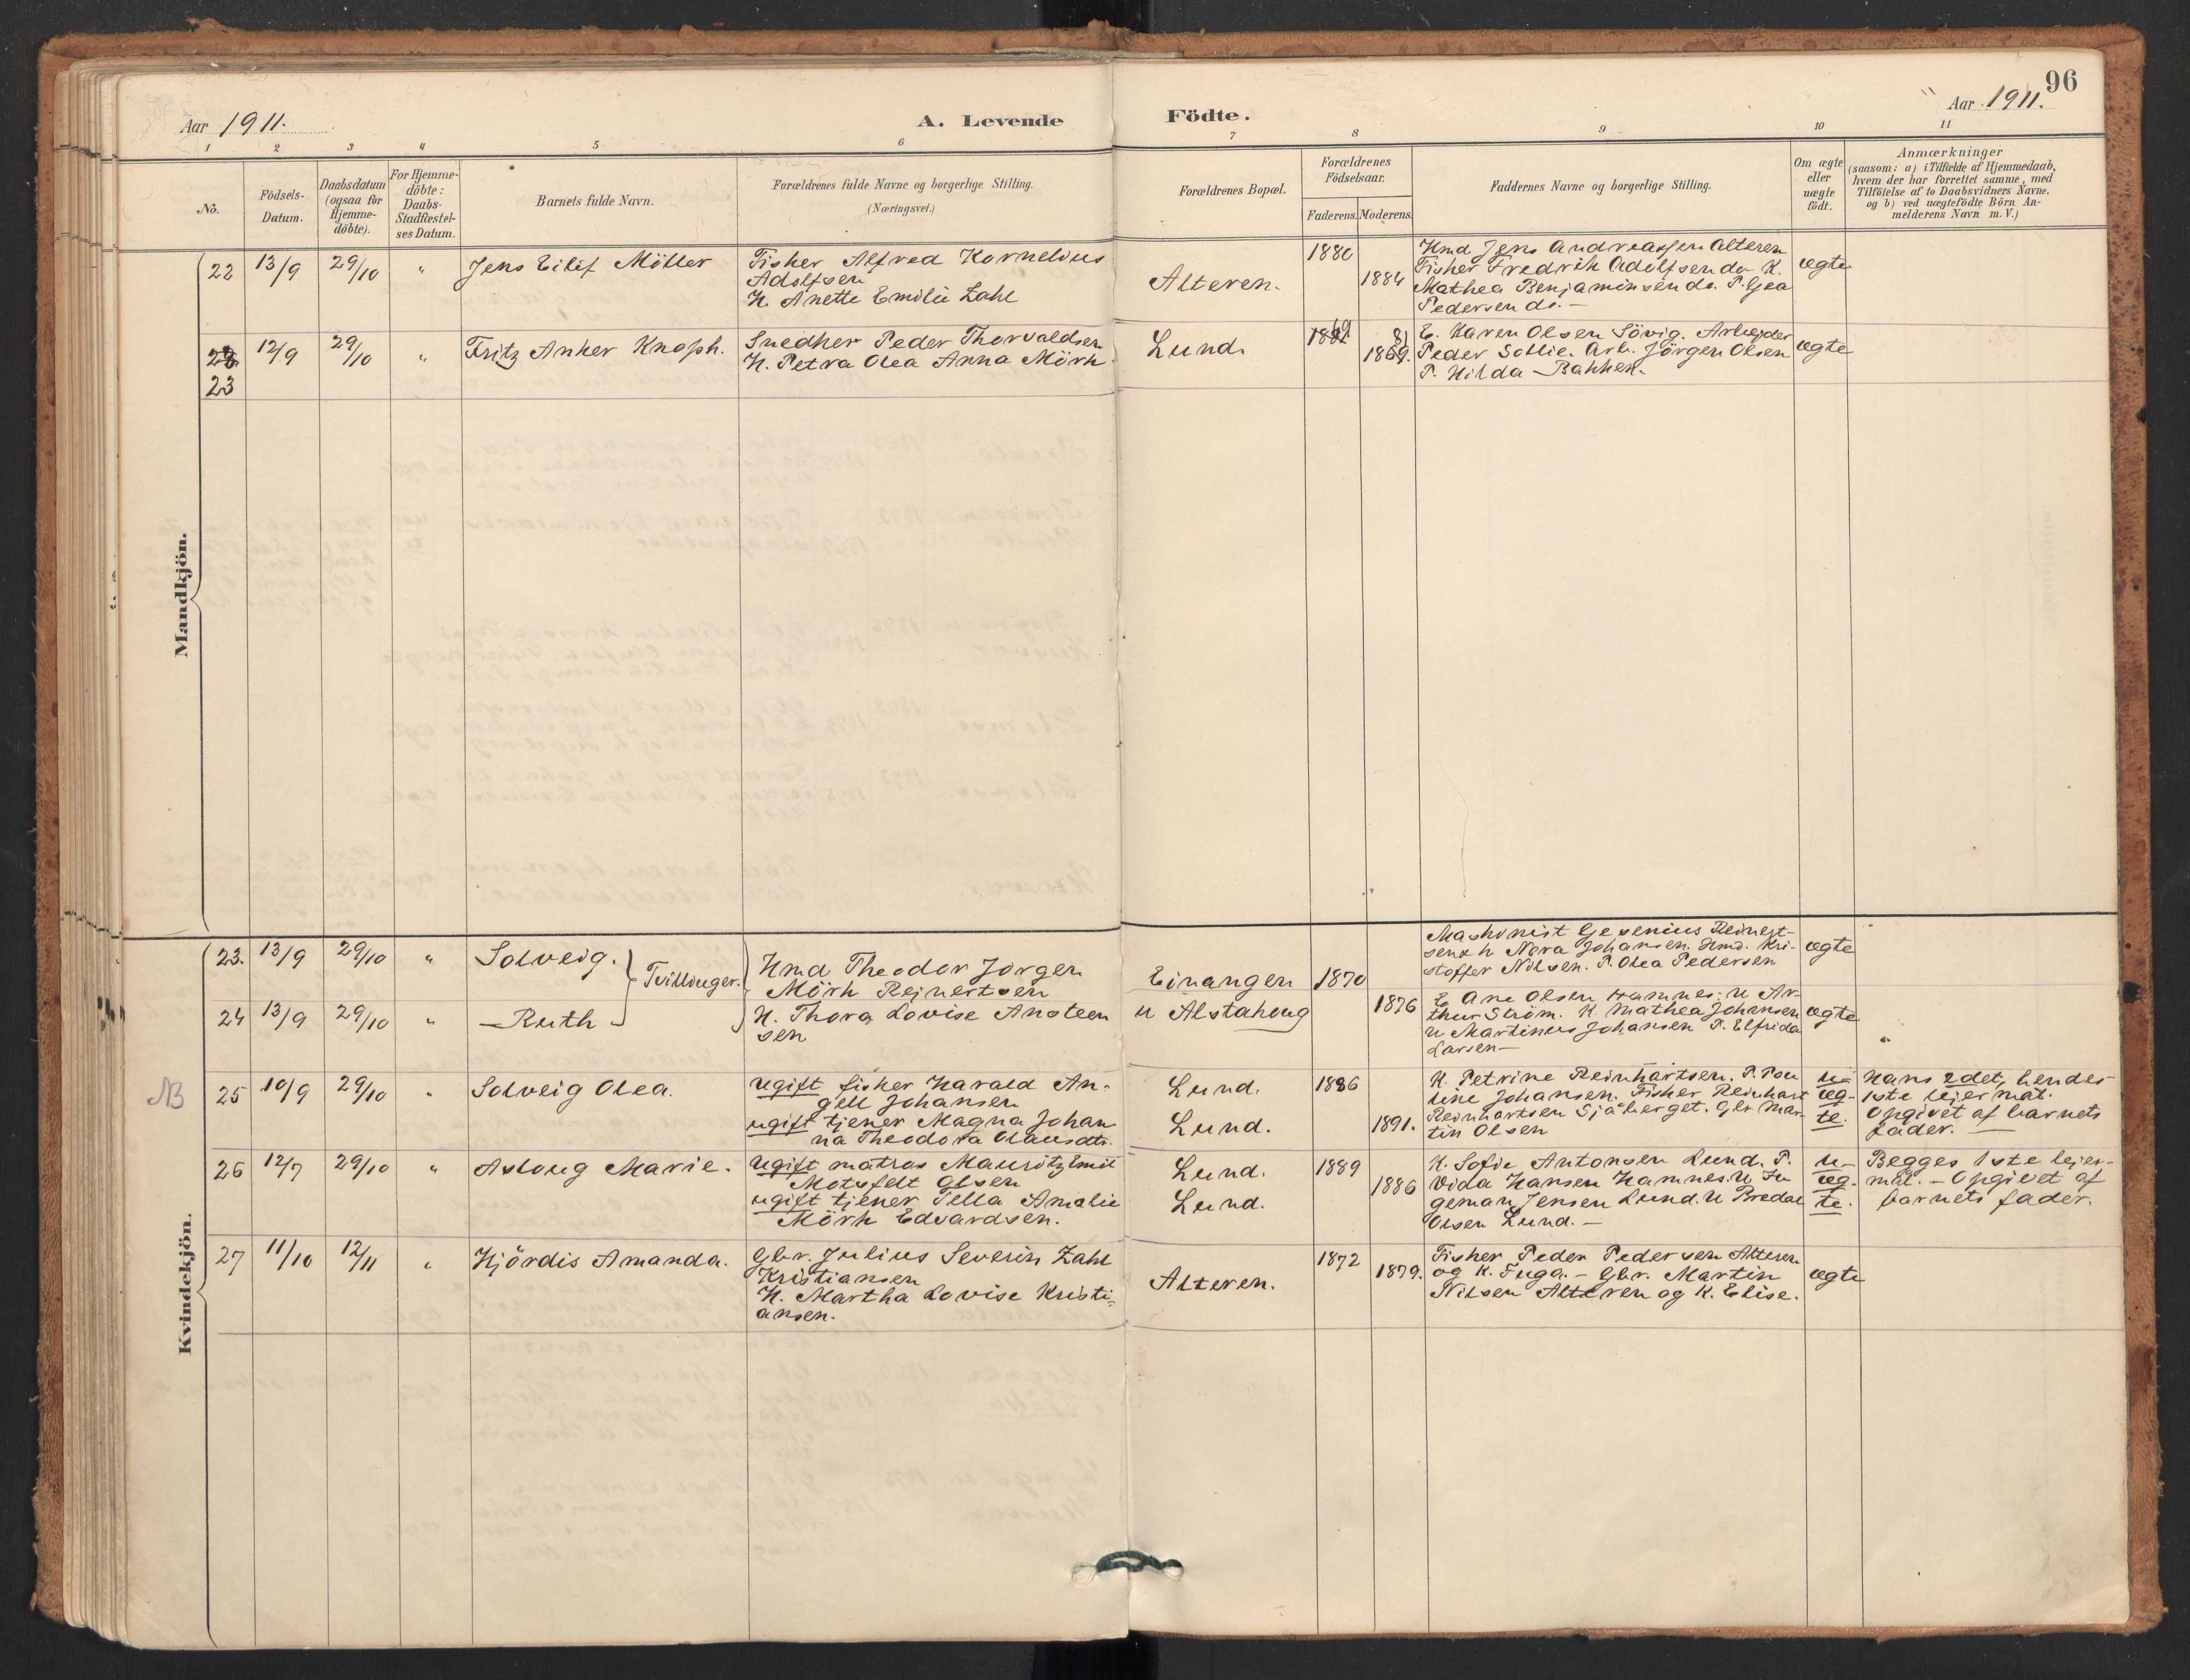 96
Aar 1911.
A. Levende
Födte.
Aar 1911.
1 2 3 4 5 6 7 8 9 10 11
No.
Födsels-
Datum.
Daabsdatum
(ogsaa for
Hjemme-
döbte).
For Hjemme-
döbte:
Daabs-
Stadfæstel-
ses Datum.
Barnets fulde Navn.
Forældrenes fulde Navne og borgerlige Stilling.
(Næringsvei.)
Forældrenes Bopæl.
Forældrenes
Födselsaar.
Faderens. Moderens.
Faddernes Navne og borgerlige Stilling.
Om ægte
eller
uægte
födt.
Anmærkninger
(saasom: a) i Tilfælde af Hjemmedaab,
hvem der har forrettet samme, med
Tilföielse af to Daabsvidners Navne.
og b) ved uægtefödte Börn An-
melderens Navn m. V.)
Mandkjön.
22 13/9 29/10 "
Jens Eilif Möller
Fisker Alfred Kornelius
Adolfsen
H. Anette Emilie Zahl
Alteren.
1880
1884
Kmd Jens Andreassen Alteren
Fisker Fredrik Adolfsen do K.
Mathea Benjaminsen do. P. Gea
Pedersen do.—
ægte
23 12/9 29/10 "
Fritz Anker Knoph.
Snedker Peder Thorvaldsen
H. Petra Olea Anna Mörk
Lund.
69
81
E. Karen Olsen Sövig. Arbejder
Peder Sollie. Arb. Jörgen Olsen
P. Hilda Bakken.
ægte
Kvindekjön.
23. 13/9 29/10 "
Solveig.
Tvillinger.
Kmd Theodor Jorgen
Mörk Rejnertsen
H. Thora Lovise Ansteen
sen
Einangen
u Alstahoug
1870
1876
Maskinist Gesenius Reinert-
sen & h Nora Johansen. Kmd. Kri-
stoffer Nilsen. P. Olea Pedersen
ægte
24 13/9 29/10 "
—Ruth
E Ane Olsen Hamnes: U Ar-
thur Ström. K. Mathea Johansen
U Martinus Johansen P. Elfrida
Larsen—
ægte
"
NB
25 10/9 29/10 "
Solveig Olea.
ugift fisker Harald An-
gell Johansen
ugift tjener Magna Johan
na Theodora Olausdtr.
Lund.
Lund.
1886
1891.
K. Petrine Reinhartsen. P. Pau
line Johansen. Fisker Reinhart
Reinhartsen Sjåberget. Gbr Mar-
tin Olsen
u-
æg-
te.
Hans 2det, hendes
1ste lejermål.
Opgivet af barnets
fader.—
26 12/7 29/10 "
Aslaug Marie.
ugift matros Mauritz Emil
Motzfelt Olsen
ugift tjener Tella Amalie
Mörk Edvardsen.
Lund.
Lund.
1889
1886
K. Sofie Antonsen Lund. P.
Vida Hansen Hamnes. U In
geman Jensen Lund. U Bredal
Olsen Lund.—
u-
æg-
te.
Begges 1ste lejer-
mål.—Opgivet af
barnets fader.
27 11/10 12/11 "
Hjördis Amanda.
Gbr. Julius Severin Zahl
Kristiansen
H. Martha Lovise Kristi-
ansen.
Alteren.
1872
1879.
Fisker Peder Pedersen Alteren
og K. Inga.—Gbr. Martin
Nilsen Alteren og K. Elise.
ægte